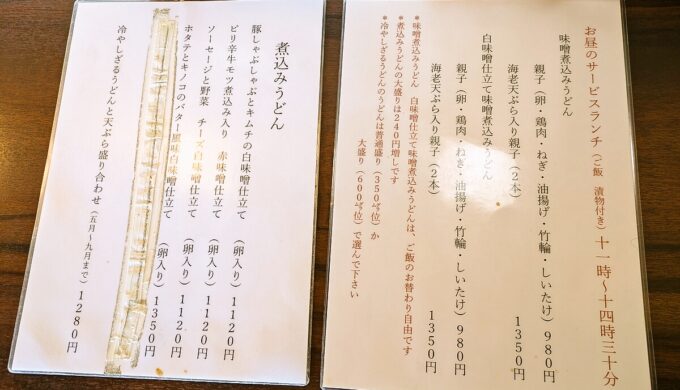 お昼のサービスランチ（ご飯　漬物付き）十一時～十四時三十分
味噌煮込みうどん
親子（卵・鶏肉・ねぎ・油揚げ・竹輪・しいたけ）９８０円
海老天ぷら入り親子（２本）　１３５０円
白味噌仕立て味噌煮込みうどん
親子（卵・鶏肉・ねぎ・油揚げ・竹輪・しいたけ）９８０円
海老天ぷら入り親子（２本）　１３５０円
＊味噌煮込みうどん　白味噌仕立て味噌煮込みうどんは、ご飯のお替わり自由です
＊煮込みうどんの大盛りは２４０円増しです
＊冷やしざるうどんのうどんは普通盛り（３５０㌘位）か
大盛り（６００㌘位）で選んで下さい
煮込みうどん
豚しゃぶしゃぶとキムチの白味噌仕立て　１１２０円
ピリ辛牛モツ煮込み入り　赤味噌仕立て（卵入り）１１２０円
ソーセージと野菜　チーズ白味噌仕立て（卵入り）１１２０円
ホタテとキノコのバター風味白味噌仕立て（卵入り）１３５０円
冷やしざるうどんと天ぷら盛り合わせ（五月～九月まで）１２８０円